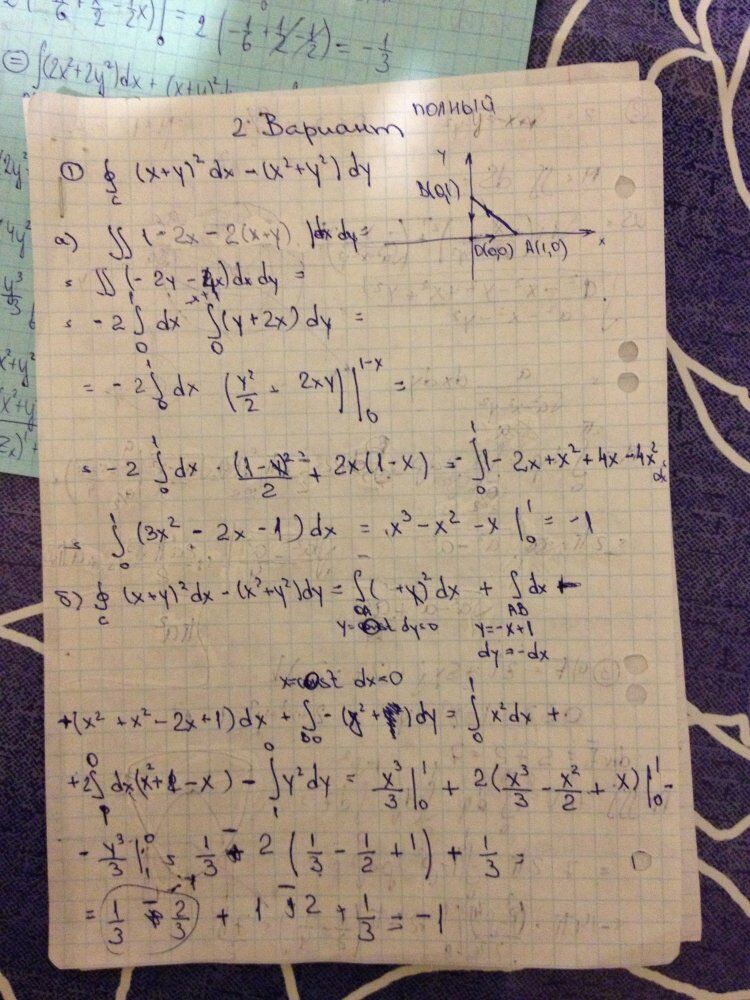 = 2 (-1/6 + 1/2 - 1/2) = -1/3
∫(2x²+2y²)dx + (x+y)²
2 Вариант полный
① ∮_c (x+y)² dx - (x²+y²) dy
y
B(0,1)
O(0,0) A(1,0) x
а) ∬ (-2x - 2(x+y)) dx dy =
= ∬ (-2y - 4x) dx dy =
= -2 ∫₀¹ dx ∫₀^(-x+1) (y+2x) dy =
= -2 ∫₀¹ dx (y²/2 + 2xy) |₀^(1-x) =
= -2 ∫₀¹ dx · (1-x)²/2 + 2x(1-x) = -∫₀¹ 1 - 2x + x² + 4x - 4x² dx
= ∫₀¹ (3x² - 2x - 1) dx = x³ - x² - x |₀¹ = -1
б) ∮_c (x+y)² dx - (x²+y²) dy = ∫_OA ( +y)² dx + ∫_AB dx +
y=const dy=0 y=-x+1
dy=-dx
x=const dx=0
+(x² + x² - 2x + 1) dx + ∫_BO -(y² + ) dy = ∫₀¹ x² dx +
+ 2 ∫₁⁰ dx (x² + 1 - x) - ∫₁⁰ y² dy = x³/3 |₀¹ + 2(x³/3 - x²/2 + x) |₀¹ -
- y³/3 |₁⁰ = 1/3 - 2 (1/3 - 1/2 + 1) + 1/3 =
= 1/3 - 2/3 + 1 - 2 + 1/3 = -1